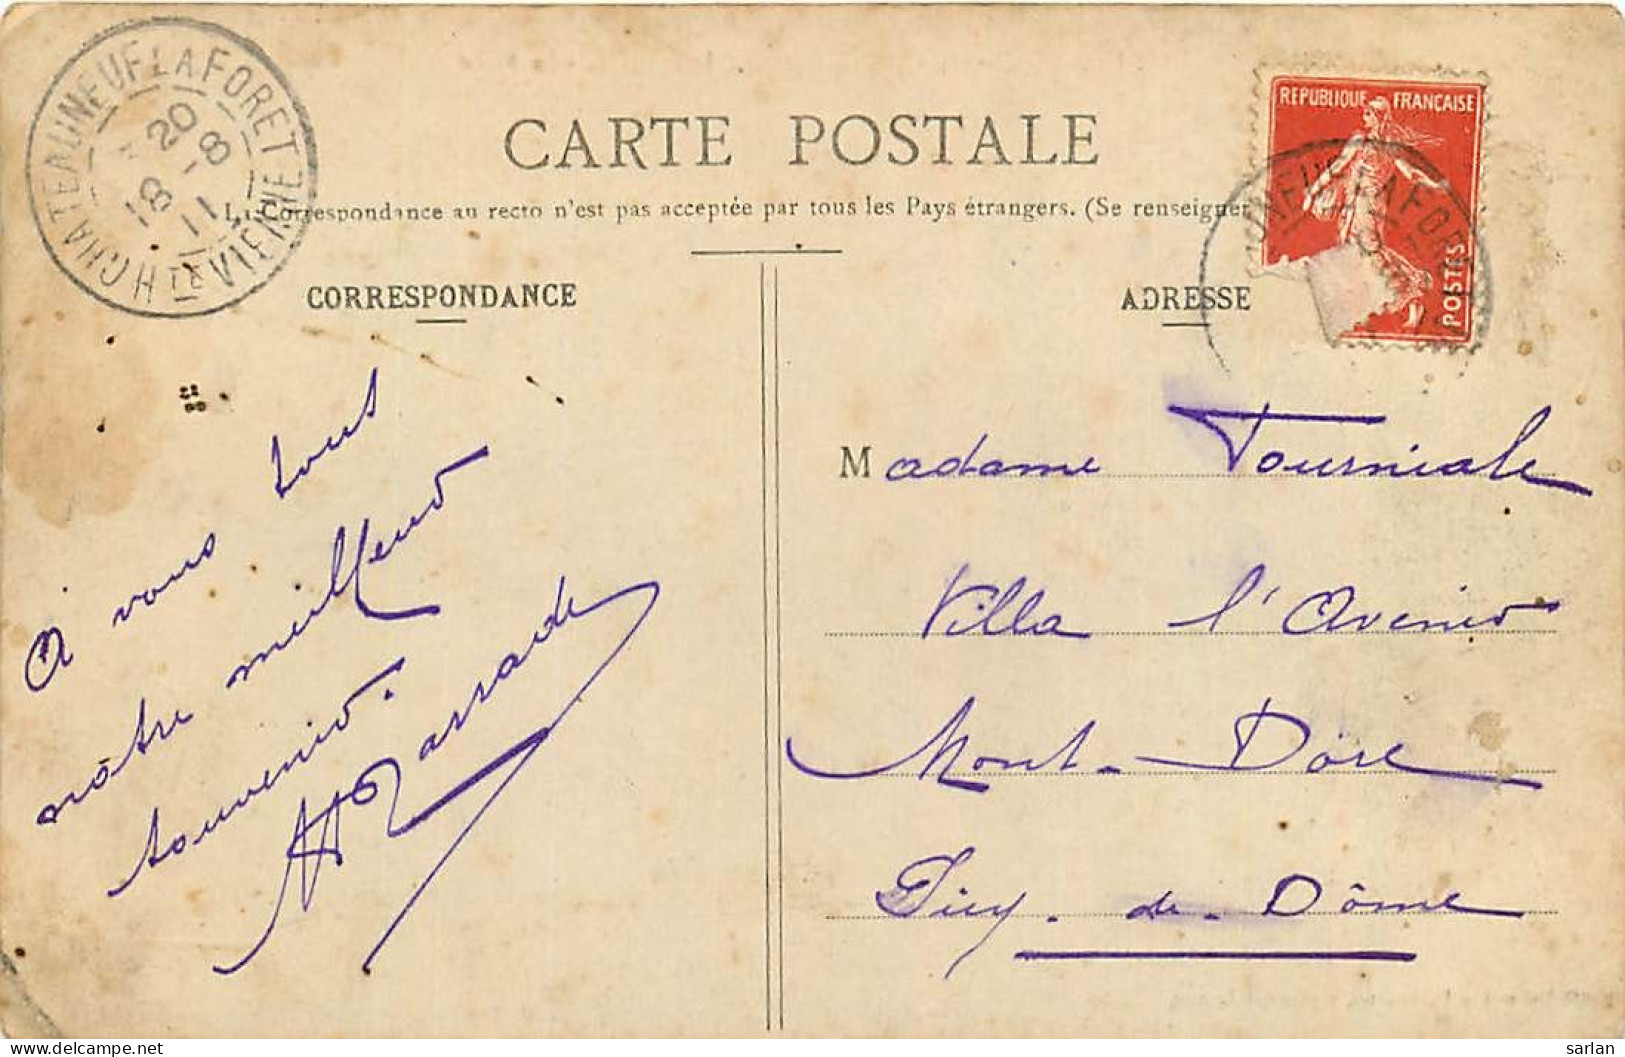 CHATEAUNEUF LA FORET
Hᵀᴱ VIENNE
20
18 -8
11
REPUBLIQUE FRANÇAISE
POSTES
CARTE POSTALE
La Correspondance au recto n'est pas acceptée par tous les Pays étrangers. (Se renseigner
CORRESPONDANCE
ADRESSE
à vous tous
nôtre meilleur
souvenir.
Madame Tourniale
Villa l'Avenir
Mont-Dore
Puy-de-Dôme
Clone https://www.delcampe.net
sarlan